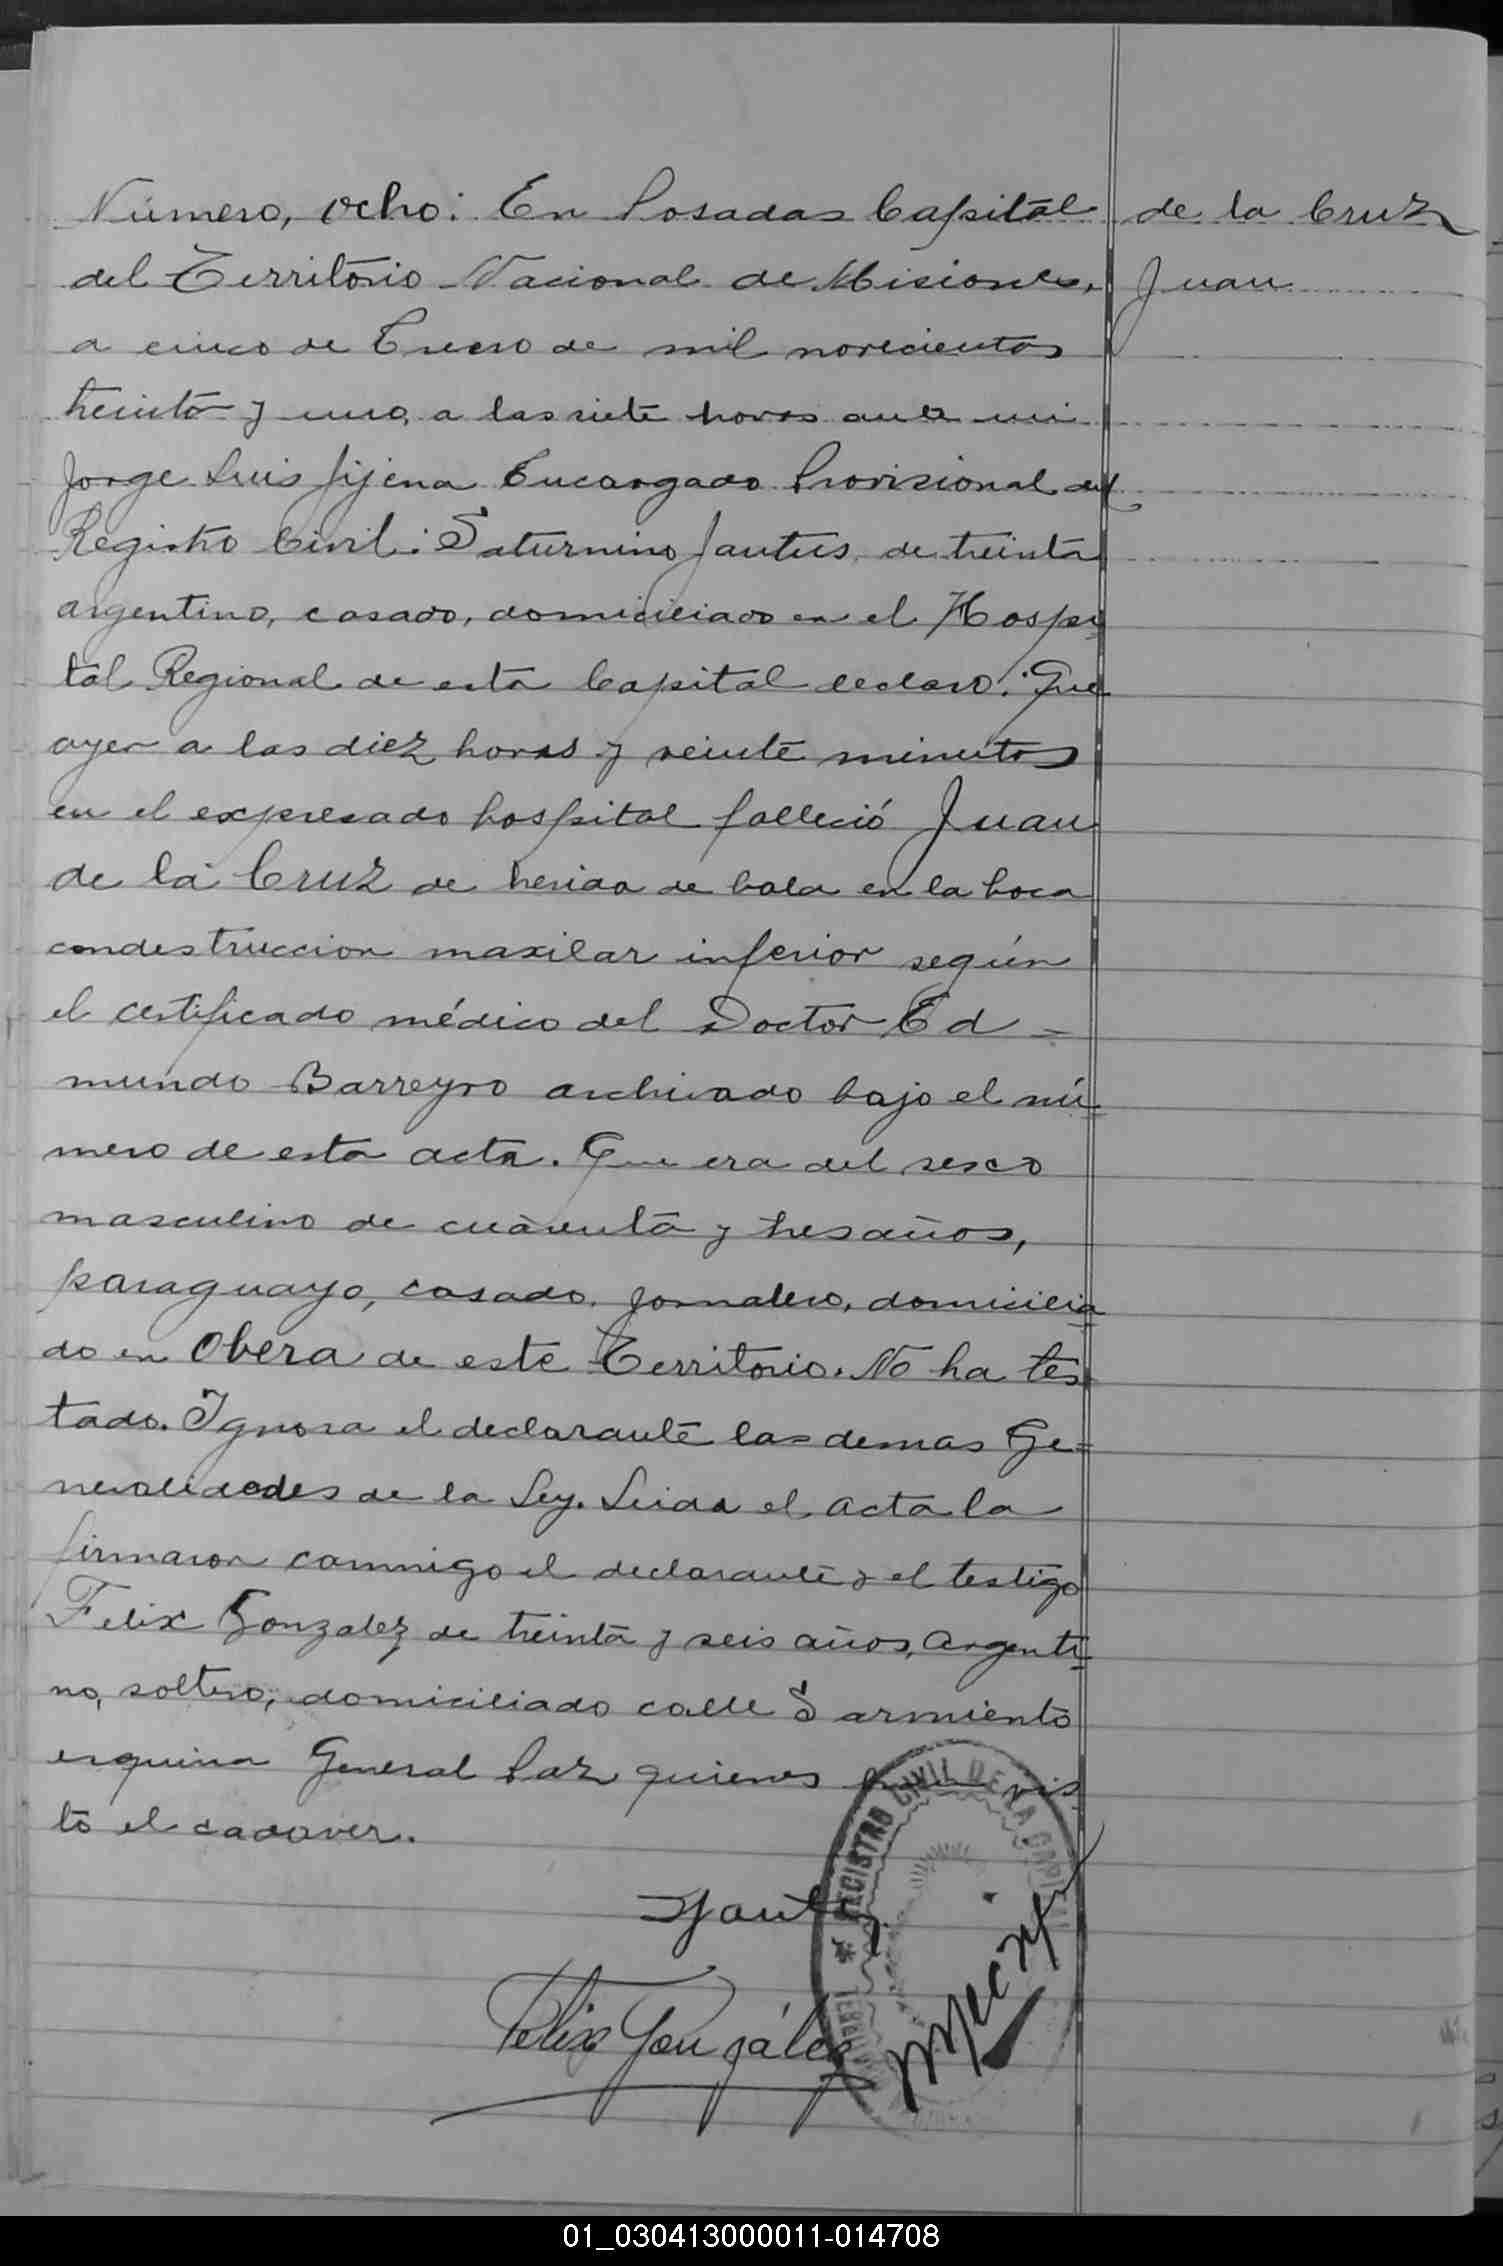 Número, ocho: En Posadas Capital
de la Cruz
del Territorio Nacional de Misiones,
Juan
a cinco de Enero de mil novecientos
treinta y uno, a las siete horas ante mi
Jorge Luis Sijena Encargado Provisional del
Registro Civil: Saturnino Jantus, de treinta
argentino, casado, domiciliado en el Hospi
tal Regional de esta Capital declaro: Que
ayer a las diez horas y veinte minutos
en el expresado hospital falleció Juan
de la Cruz de herida de bala en la boca
con destruccion maxilar inferior según
el certificado médico del Doctor Ed-
mundo Barreyro archivado bajo el nú-
mero de esta acta. Que era del sexo
masculino de cuarenta y tres años,
paraguayo, casado, jornalero, domicilia
do en Obera de este Territorio. No ha tes
tado. Ignora el declarante las demas Ge=
neralidades de la Ley. Leida el acta la
firmaron conmigo el declarante y el testigo
Felix Gonzalez, de treinta y seis años, argenti
no, soltero, domiciliado calle Sarmiento
esquina General Paz quienes han vis
to el cadaver.
REGISTRO CIVIL DE LA CAPITAL
Felix González
01_030413000011-014708